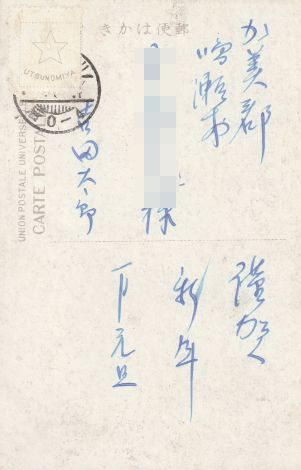 きかは便郵
UTSUNOMIYA
UNION POSTALE UNIVERSELLE
CARTE POSTALE
加美郡
鳴瀬村
様
吉田太郎
謹賀
新年
一月元旦